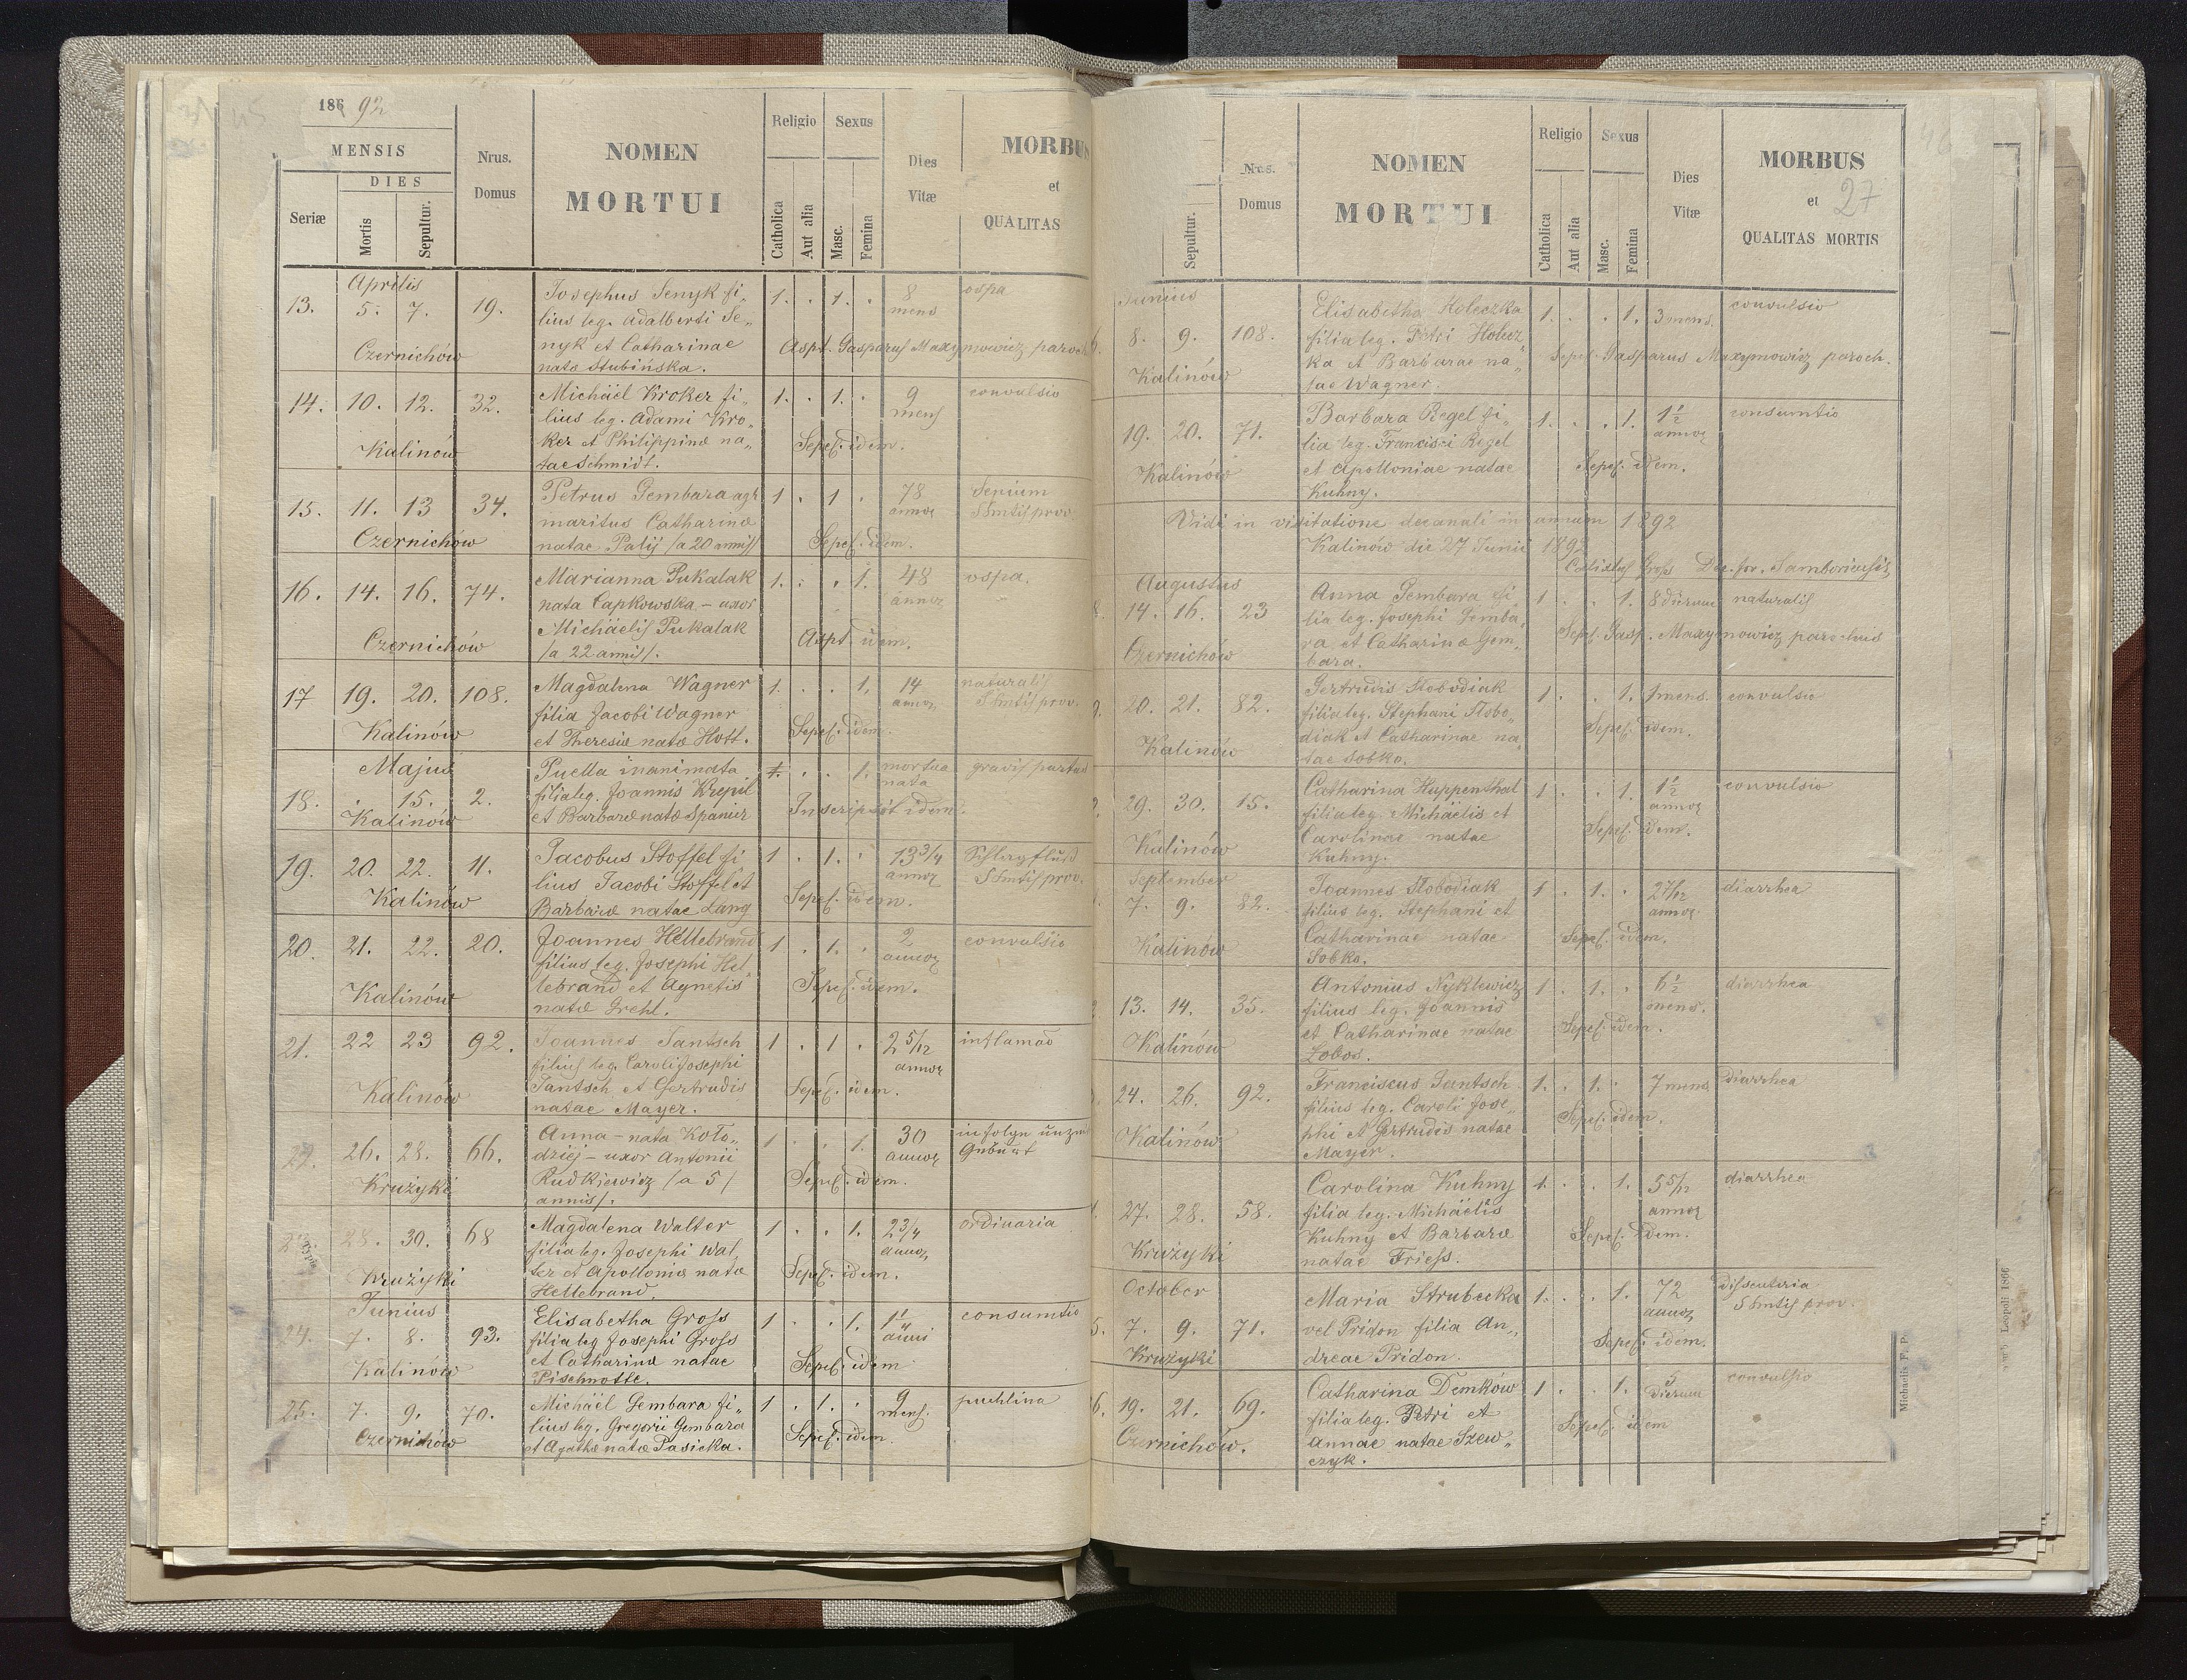 186 92
MENSIS
DIES
Seriæ
Mortis
Sepultur.
Nrus.
Domus
NOMEN
MORTUI
Religio
Sexus
Catholica
Aut alia
Masc.
Femina
Dies
Vitæ
MORBUS
et
QUALITAS
Aprilis
13. 5. 7. 19.
Czernichów
Josephus Senyk fi„
lius leg. Adalberti Se„
nyk et Catharinae
nata Stubińska.
1. . 1. . 8
mens
ospa
Aspt. Gasparus Maxymowicz paroch
14. 10. 12. 32.
Kalinów
Michäel Kroker fi„
lius leg. Adami Kro„
ker et Philippinæ na„
tae Schmidt.
1. . 1. . 9
mens
convulsio
Sepel. idem.
15. 11. 13 34.
Czernichów
Petrus Gembara agr
maritus Catharinæ
natae Palij /a 20 annis/
1 . 1 . 78
annor
Senium
Shmtis prov.
Sepel. idem.
16. 14. 16. 74.
Czernichów
Marianna Pukalak
nata Capkowska – uxor
Michäelis Pukalak
/a 22 annis/.
1. . . 1. 48
annor
ospa.
Aspt. idem.
17 19. 20. 108.
Kalinów
Magdalena Wagner
filia Jacobi Wagner
et Theresiæ natæ Hott.
1. . . 1. 14
annor
naturalis
Shmtis prov.
Sepel. idem.
Majus
18. . 15. 2.
Kalinów
Puella inanimata
filia leg. Joannis Krepil
et Barbaræ natæ Spanier
1. . . 1. mortua
nata
gravis partus
Inscripsit idem.
19. 20. 22. 11.
Kalinów
Jacobus Stoffel fi
lius Jacobi Stoffel et
Barbaræ natae Lang
1 . 1. . 13 3/4
annor
Schlagfluß
Shmtis prov.
Sepel. idem.
20. 21. 22. 20.
Kalinów
Joannes Hellebrand
filius leg. Josephi Hel„
lebrand et Agnetis
natæ Grehl.
1 . 1. . 2
annor
convulsio
Sepel. idem.
21. 22 23 92.
Kalinów
Joannes Jantsch
filius leg. Caroli Josephi
Jantsch et Gertrudis
natae Mayer.
1 . 1 . 2 5/12
annor
inflamao
Sepel. idem.
22. 26. 28. 66.
Krużyki
Anna – nata Koło„
dziej – uxor Antonii
Rudkiewicz /a 5/
annis/.
1 . . 1. 30
annor
infolge
Geburt
Sepel. idem.
28. 30. 68
Krużyki
Magdalena Walter
filia leg. Josephi Wal„
ter et Apolloniæ natæ
Hellebrand.
1 . . 1. 2 3/4
annor
ordinaria
Sepel. idem.
Junius
24. 7. 8. 93.
Kalinów
Elisabetha Gross
filia leg Josephi Gross
et Catharinæ natae
Pischnotte.
1 . . 1. 1 1/4
anni
consumtio
Sepel. idem
25. 7. 9. 70.
Czernichów
Michäel Gembara fi„
lius leg. Gregorii Gembara
et Agathæ natæ Pasicka.
1 . 1. . 9
mens.
puchlina
Sepel. idem.
Sepultur.
Nrus.
Domus
NOMEN
MORTUI
Religio
Sexus
Catholica
Aut alia
Masc.
Femina
Dies
Vitæ
MORBUS
et 27
QUALITAS MORTIS
Junius
8. 9. 108.
Kalinów
Elisabetha Holeczka
filia leg. Petri Holecz„
ka et Barbarae na„
tae Wagner.
1. . . 1. 3 mens.
convulsio
Sepel. Gasparus Maxymowicz paroch.
19. 20. 71.
Kalinów
Barbara Regel fi„
lia leg. Francisci Regel
et Apolloniae natae
Kuhny.
1. . . 1. 1 1/2
annor
consumtio
Sepel. idem.
Vidi in visitatione decanali in annum 1892
Kalinów die 27 Junii 1892
Calistus Gross Dec. for. Samboriensis
Augustus
14. 16. 23
Czernichów
Anna Gembara fi
lia leg. Josephi Gemba„
ra et Catharinæ Gem„
bara.
1 . . 1. 8 dierum
naturalis
Sepel. Gasp. Maxymowicz parochus
20. 21. 82.
Kalinów
Gertrudis Słobodiak
filia leg. Stephani Słobo„
diak et Catharinae na„
tae Sobko.
1 . . 1. 1 mens.
convulsio
Sepel. idem.
29. 30. 15.
Kalinów
Catharina Huppenthal
filia leg. Michäelis et
Carolinae natae
Kuhny.
1 . . 1. 1 1/2
annor
convulsio
Sepel. idem.
September
7. 9. 82.
Kalinów
Joannes Słobodiak
filius leg. Stephani et
Catharinae natae
Sobko.
1 . 1. . 2 7/12
annor
diarrhea
Sepel. idem.
13. 14. 35.
Kalinów
Antonius Nyklewicz
filius leg. Joannis
et Catharinae natae
Łobos.
1 . 1. . 6 1/2
mens.
diarrhea
Sepel. idem.
24. 26. 92.
Kalinów
Franciscus Jantsch
filius leg. Caroli Jose„
phi et Gertrudis natae
Mayer.
1. . 1. . 7 mens
diarrhea
Sepel. idem.
27. 28. 58.
Krużyki
Carolina Kuhny
filia leg. Michäelis
Kuhny et Barbaræ
natae Friess.
1. . . 1. 5 5/12
annor
diarrhea
Sepel. idem.
October
5. 7. 9. 71.
Krużyki
Maria Strubecka
vel Pridon filia An„
dreae Pridon.
1. . . 1. 72
annor
dissenteria
Shmtis prov.
Sepel. idem.
6. 19. 21. 69.
Czernichów.
Catharina Demków
filia leg. Petri et
Annae natae Szew„
czyk.
1 . . 1. 5
dierum
convulsio
Sepel. idem
Michaelis F. P.
Leopoli 1866